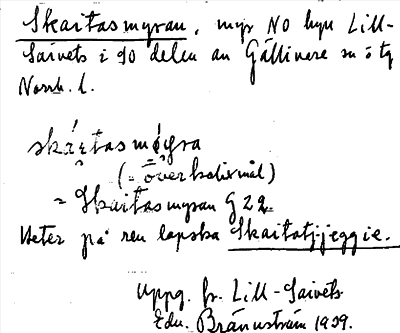 Skaitasmyran, myr NO hyn Lill-
Saivets i SO delen av Gällivare sn ö tg
Norrb. l.
skáitas mỳra
(= överkalixmål)
= Skaitasmyran G22
Heter på ren lapska Skaitatjjeggie.
Uppg. fr. Lill-Saivets
Edv. Brännström 1939.